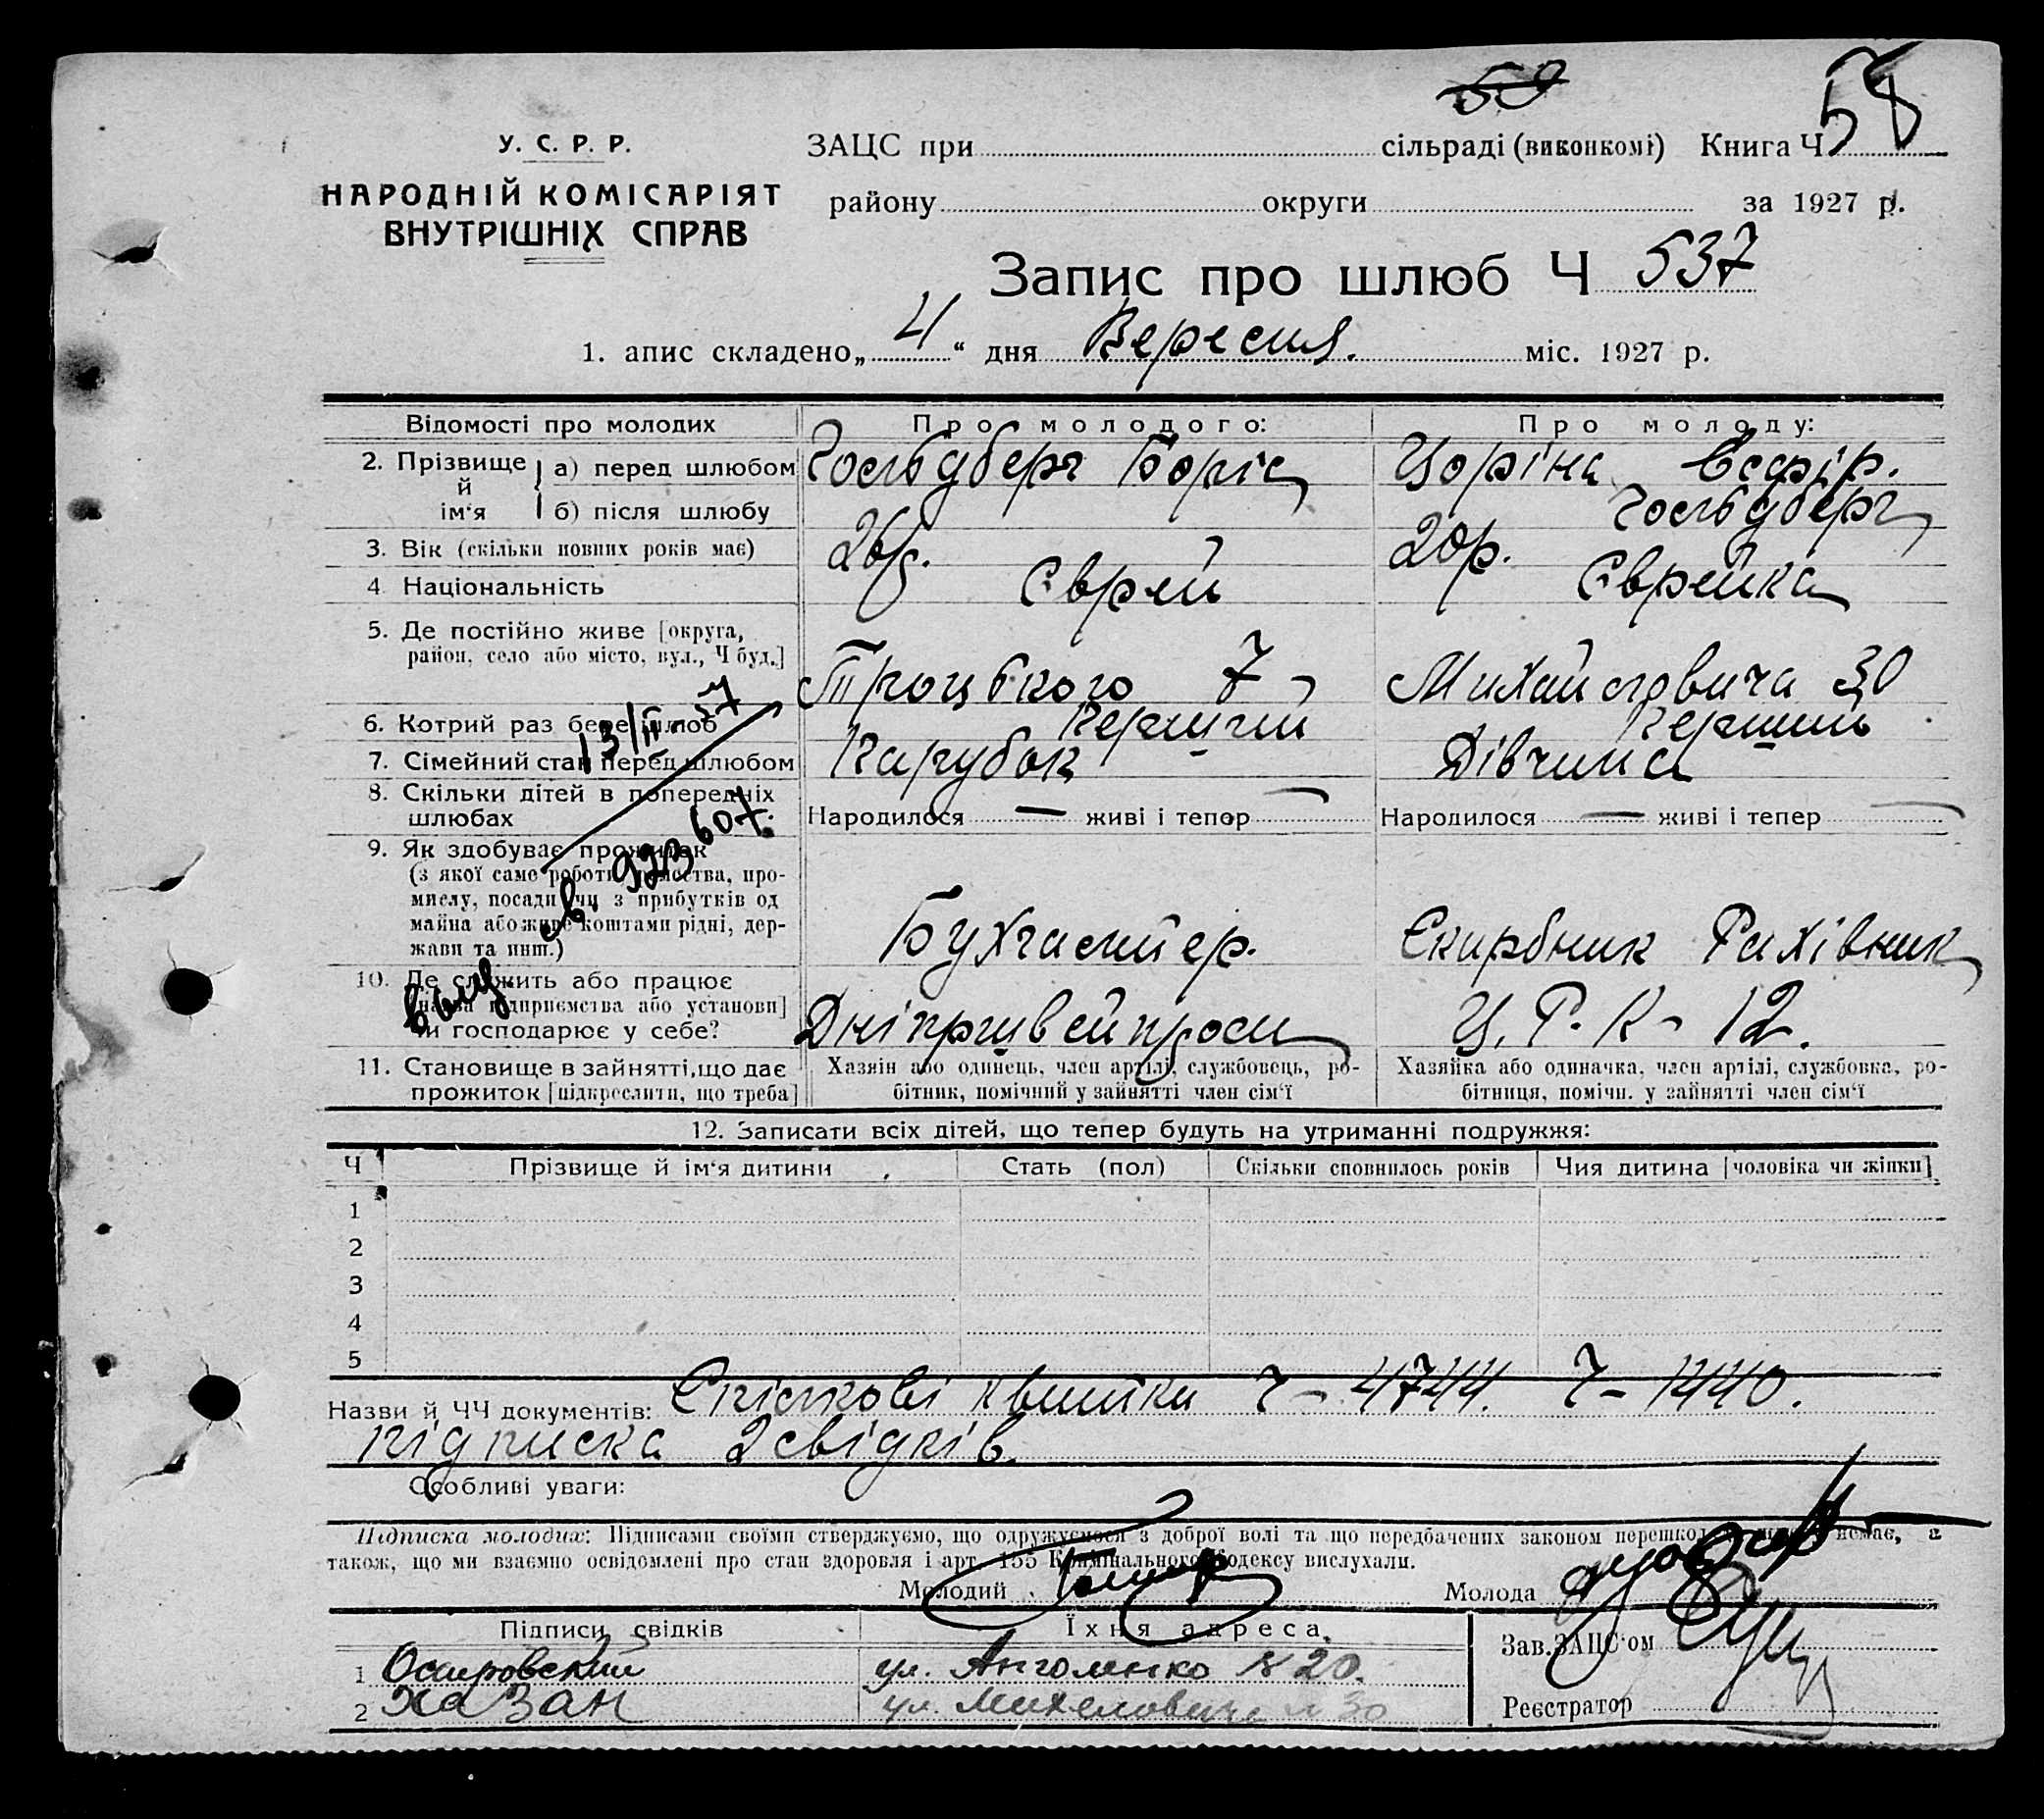 50
58
У. С. Р. Р.
НАРОДНІЙ КОМІСАРІЯТ
ВНУТРІШНІХ СПРАВ
ЗАЦС при сільраді (виконкомі) Книга Ч
району округи за 1927 р.
Запис про шлюб Ч 537
1. апис складено „ 4 “ дня Вересня. міс. 1927 р.
Відомості про молодих Про молодого: Про молоду:
2. Прізвище й ім‘я а) перед шлюбом Гольдберг Боріс Цоріна Есфір.
б) після шлюбу Гольдберг
3. Вік (скільки повних років має) 26р. 20р.
4 Національність Єврей Єврейка
5. Де постійно живе [округа,
район, село або місто, вул., Ч буд.] Троцького 7 Михайловича 30
6. Котрий раз бере шлюб Перший Перший
7. Сімейний стан перед шлюбом Парубок Дівчина
8. Скільки дітей в попередніх
шлюбах Народилося — живі і тепер — Народилося — живі і тепер —
9. Як здобуває прожиток
(з якої саме роботи, ремества, про-
мислу, посади чи з прибутків од
майна або живе коштами рідні, дер-
жави та инш.) Бухгалтер. Рахівник
10. Де служить або працює
[назва підприємства або установи]
чи господарює у себе? Ц. Р. К - 12.
13/II 57
в. 923607.
11. Становище в зайнятті, що дає
прожиток [підкреслити, що треба]
Хазяїн або одинець, член артілі, службовець, ро-
бітник, помічний у зайнятті член сім‘ї
Хазяйка або одиначка, член артілі, службовка, ро-
бітниця, помічн. у зайнятті член сім‘ї
12. Записати всіх дітей, що тепер будуть на утриманні подружжя:
Ч Прізвище й ім‘я дитини Стать (пол) Скільки сповнилось років Чия дитина [чоловіка чи жінки]
1
2
3
4
5
Назви й ЧЧ документів: Спілкові квитки Ч - 4744. Ч - 1440.
підписка 2 свідків.
Особливі уваги:
Підписка молодих: Підписами своїми стверджуємо, що одружуємося з доброї волі та що передбачених законом перешкод немає, а
також, що ми взаємно освідомлені про стан здоровля і арт. 155 Крімінального Кодексу вислухали.
Молодий Молода
Підписи свідків Їхня адреса.
1 Островский ул. № 20.
2 Хазан ул. Михеловича № 30
Зав. ЗАЦС‘ом
Реєстратор